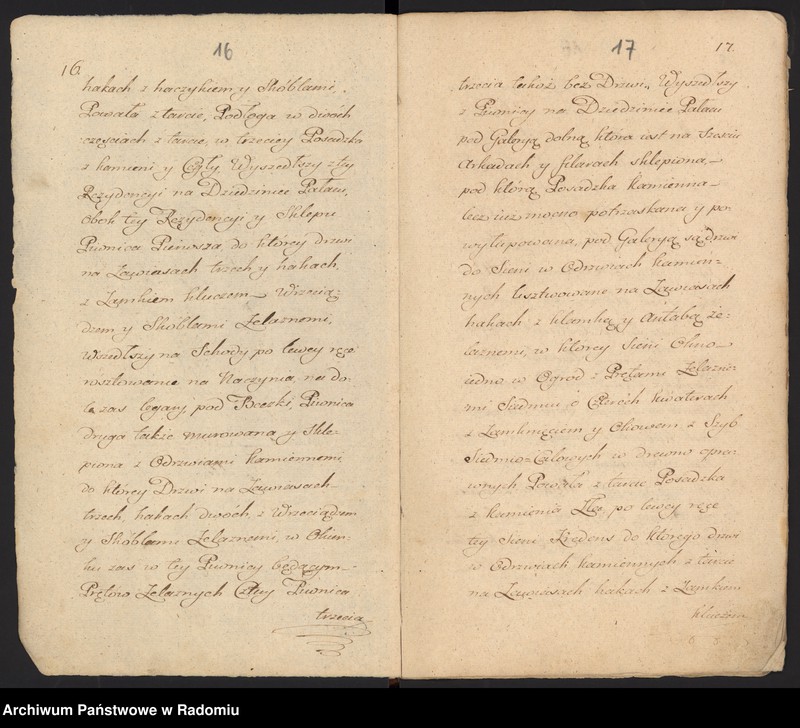 16
16.
hakach z haczykiem y Skóblami,
Powała z tarcic, Podłoga w dwóch
częściach z tarcic, w trzeciey Posadzka
z kamieni y Cegły. Wyszedłszy z tey
Rezydencyi na Dziedziniec Pałacu,
obok tey Rezydencyi y Sklepu
Piwnica Pierwsza, do którey drzwi
na Zawiasach trzech y hakach,
z Zamkiem kluczem Wrzecią-
dzem y Skóblami Zelaznemi,
Wszedłszy na Schody po lewey ręce
na Naczynia, na do-
le zas legary, pod Beczki, Piwnica
druga także murowana y Skle-
piona z Odrzwiami kamiennemi,
do którey Drzwi na Zawiasach
trzech, hakach dwóch, z Wrzeciądzem
y Skóblami Zelaznemi, w Okien-
ku zas w tey Piwnicy będącym
Prętów Zelaznych Cztery Piwnica
trzecia
17
17.
trzecia takoż bez Drzwi, Wyszedłszy
z Piwnicy na Dziedziniec Pałacu
pod Galeryą dolną która iest na Sześciu
Arkadach y filarach sklepiona,
pod którą Posadzka kamienna
lecz iuz mocno potrzaskana y po-
wyłupowana, pod Galeryą są drzwi
do Sieni w Odrzwiach kamien-
nych na Zawiasach
hakach z klamką y Antabą że-
laznemi, w którey Sieni Okno
iedno w Ogrod z Prętami Zelazne-
mi Siedmiu o Czterech kwaterach
z Zamknięciem y Okowem z Szyb
Siedmio-Calowych w drewno opra-
wnych Powała z tarcic Posadzka
z kamienia Zła, po lewey ręce
tey Sieni do ktorego drzwi
w Odrzwiach kamiennych z tarcic
na Zawiasach hakach z Zamkiem
kluczem
Archiwum Państwowe w Radomiu